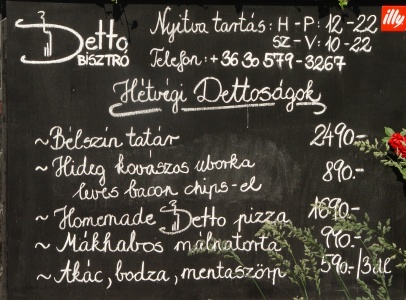 Detto
BISZTRÓ
Nyitva tartás: H - P: 12 - 22
SZ - V: 10 - 22
Telefon: +36 30 579-3267
illy
Hétvégi Dettoságok
~ Bélszín tatár 2490.-
~ Hideg kovászos uborka
leves bacon chips-el 890.-
~ Homenade Detto pizza 1690.-
~ Mákhabos málnatorta 990.-
~ Akác, bodza, mentaszörp 590.-/3dl